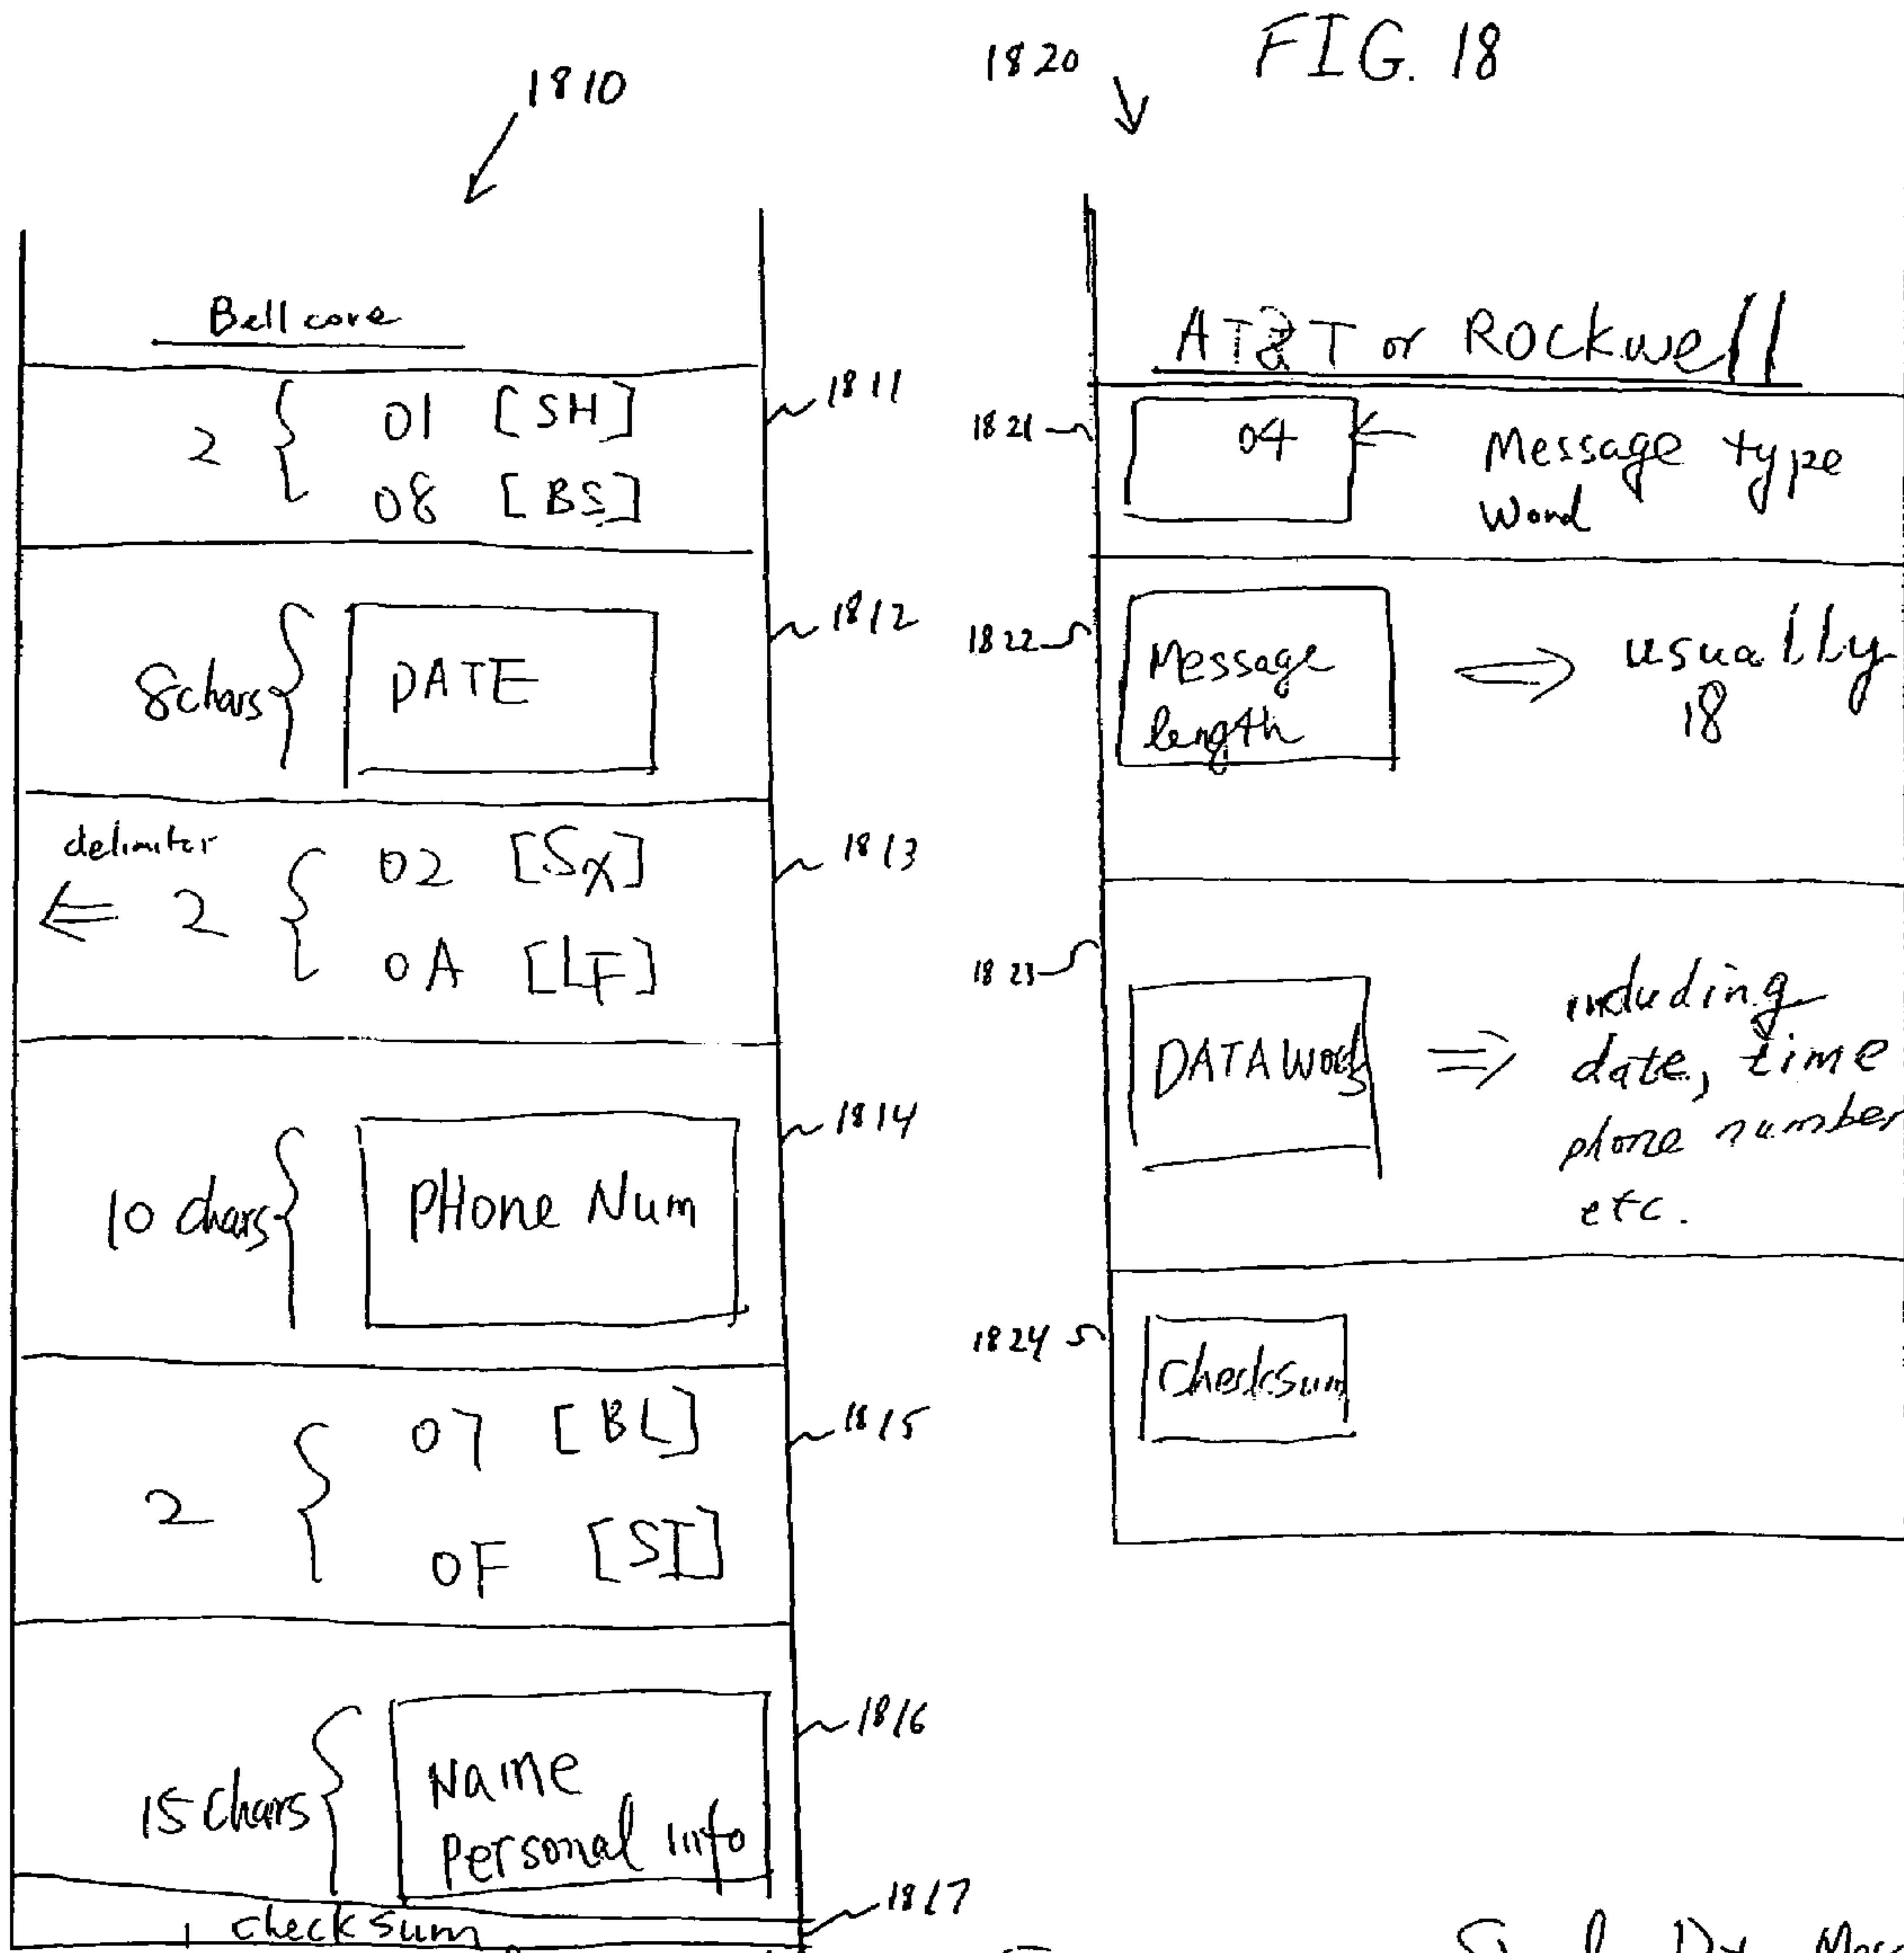 FIG. 18
1810
Bellcore
2 { 01 [SH]
08 [BS]
1811
8 chars { DATE
1812
delimiter
⇐ 2 { 02 [SX]
0A [LF]
1813
10 chars { PHone Num
1814
2 { 07 [BL]
0F [SI]
1815
15 chars { Name
Personal Info
1816
checksum
1817
1820
AT&T or Rockwell
1821
04 ← Message type
Word
1822
Message
length
⇒ usually
18
1823
DATA Words
⇒ including
date, time
phone number
etc.
1824
checksum